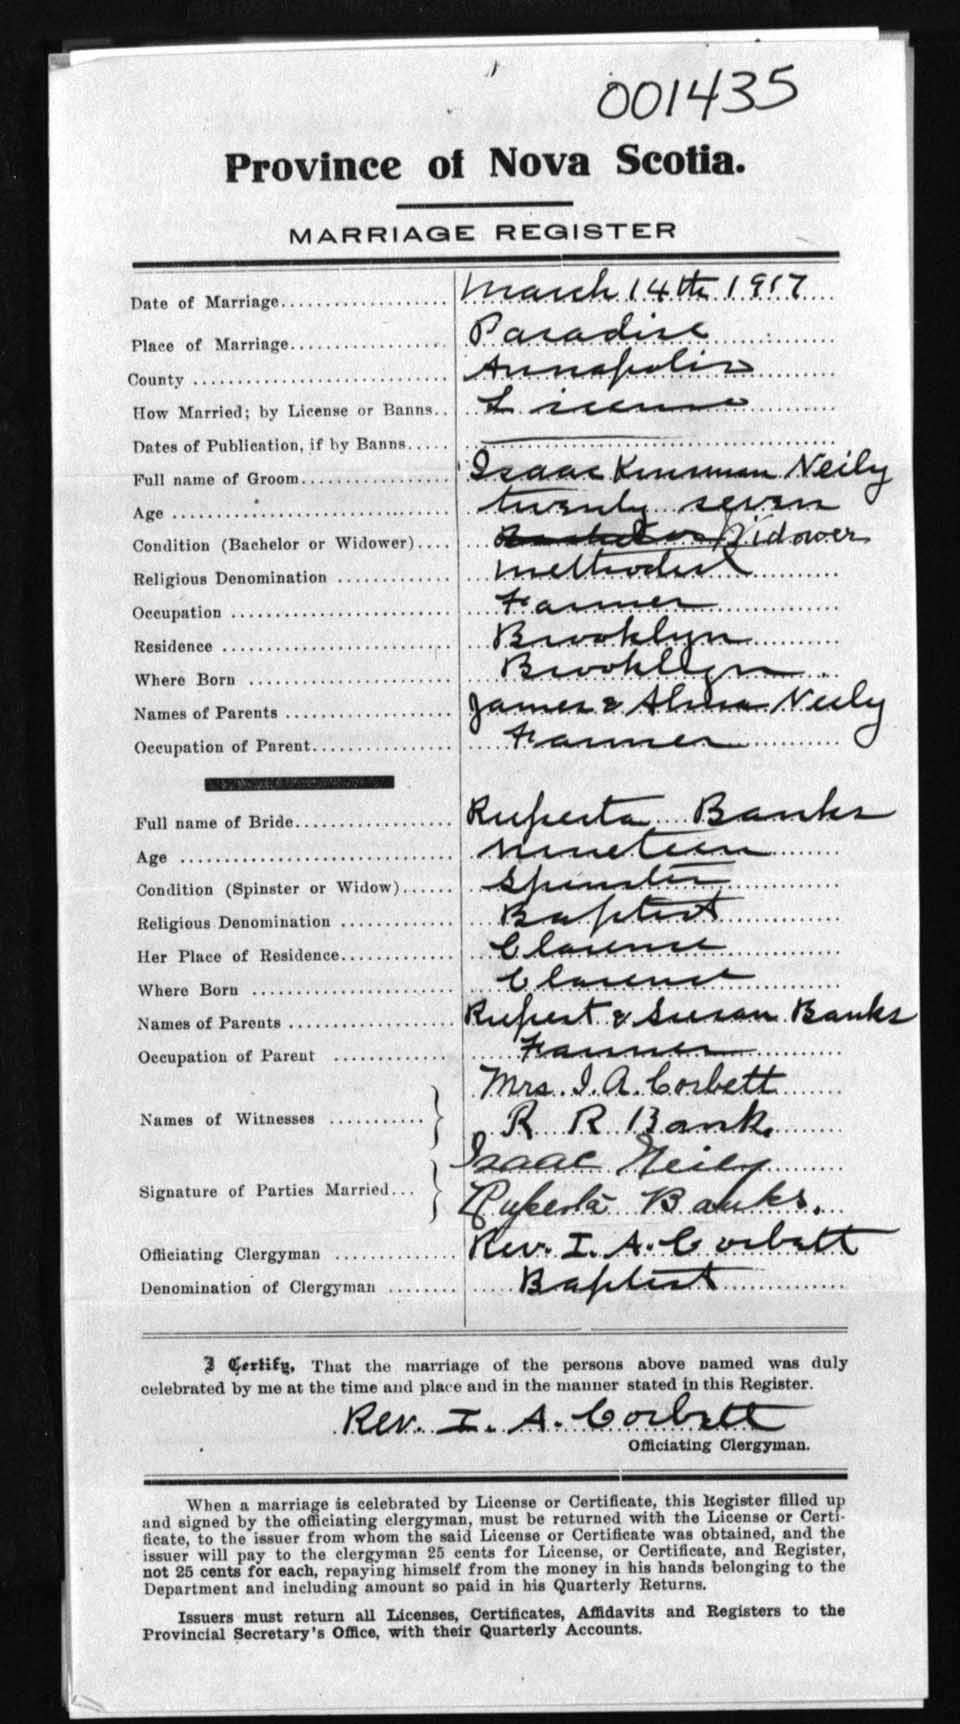 001435
Province of Nova Scotia.
MARRIAGE REGISTER
Date of Marriage................... March 14th 1917
Place of Marriage.................. Paradise
County ............................. Annapolis
How Married; by License or Banns.. License
Dates of Publication, if by Banns.....
Full name of Groom................. Isaac Kinsman Neily
Age ................................ twenty seven
Condition (Bachelor or Widower).... Bachelor Widower
Religious Denomination ............ Methodist
Occupation ......................... Farmer
Residence .......................... Brooklyn
Where Born ....................... Brooklyn
Names of Parents ................... James & Alma Neily
Occupation of Parent................ Farmer
Full name of Bride.................. Ruperta Banks
Age ............................... Nineteen
Condition (Spinster or Widow)...... Spinster
Religious Denomination ............ Baptist
Her Place of Residence............. Clarence
Where Born ....................... Clarence
Names of Parents .................. Rupert & Susan Banks
Occupation of Parent ............ Farmer
Names of Witnesses ........... } Mrs. I. A. Corbett
R R Bank.
Signature of Parties Married... } Isaac Neily
Ruperta Banks.
Officiating Clergyman ............ Rev. I. A. Corbett
Denomination of Clergyman ........ Baptist
I Certify, That the marriage of the persons above named was duly
celebrated by me at the time and place and in the manner stated in this Register.
Rev. I. A. Corbett
Officiating Clergyman.
When a marriage is celebrated by License or Certificate, this Register filled up
and signed by the officiating clergyman, must be returned with the License or Certi-
ficate, to the issuer from whom the said License or Certificate was obtained, and the
issuer will pay to the clergyman 25 cents for License, or Certificate, and Register,
not 25 cents for each, repaying himself from the money in his hands belonging to the
Department and including amount so paid in his Quarterly Returns.
Issuers must return all Licenses, Certificates, Affidavits and Registers to the
Provincial Secretary's Office, with their Quarterly Accounts.